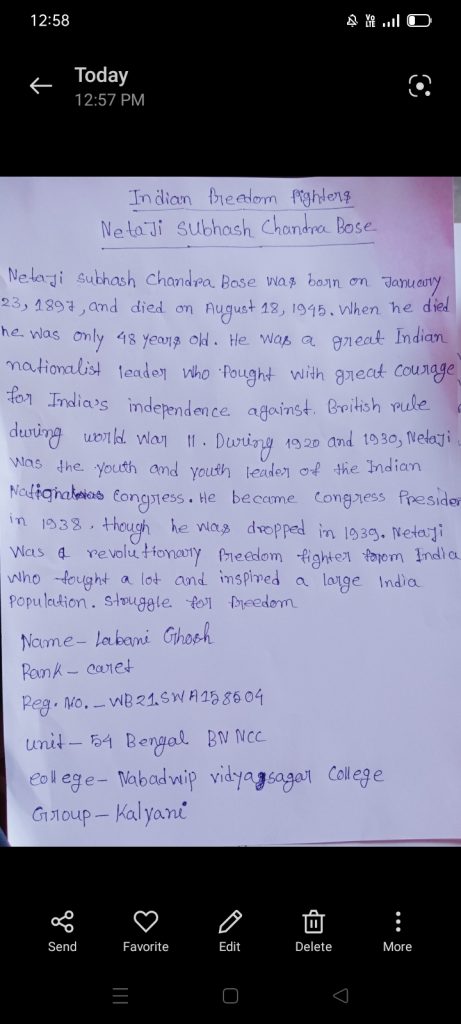 12:58
Vo
LTE
Today
12:57 PM
Indian Freedom Fighters
NetaJi Subhash Chandra Bose
Netaji Subhash Chandra Bose was born on January
23, 1897, and died on August 18, 1945. When he died
he was only 48 years old. He was a great Indian
nationalist leader who fought with great courage
for India's independence against. British rule
during world War 11. During 1920 and 1930, Netaji
was the youth and youth leader of the Indian
Congress. He became Congress Presiden
in 1938. though he was dropped in 1939. Netaji
was a revolutionary freedom fighter from India
who fought a lot and inspired a large India
Population. Struggle for freedom
Name – Labani Ghosh
Rank – caret
Reg. No. – WB21SWA158504
unit – 54 Bengal BN NCC
college – Nabadwip vidyasagar College
Group – Kalyani
Send
Favorite
Edit
Delete
More